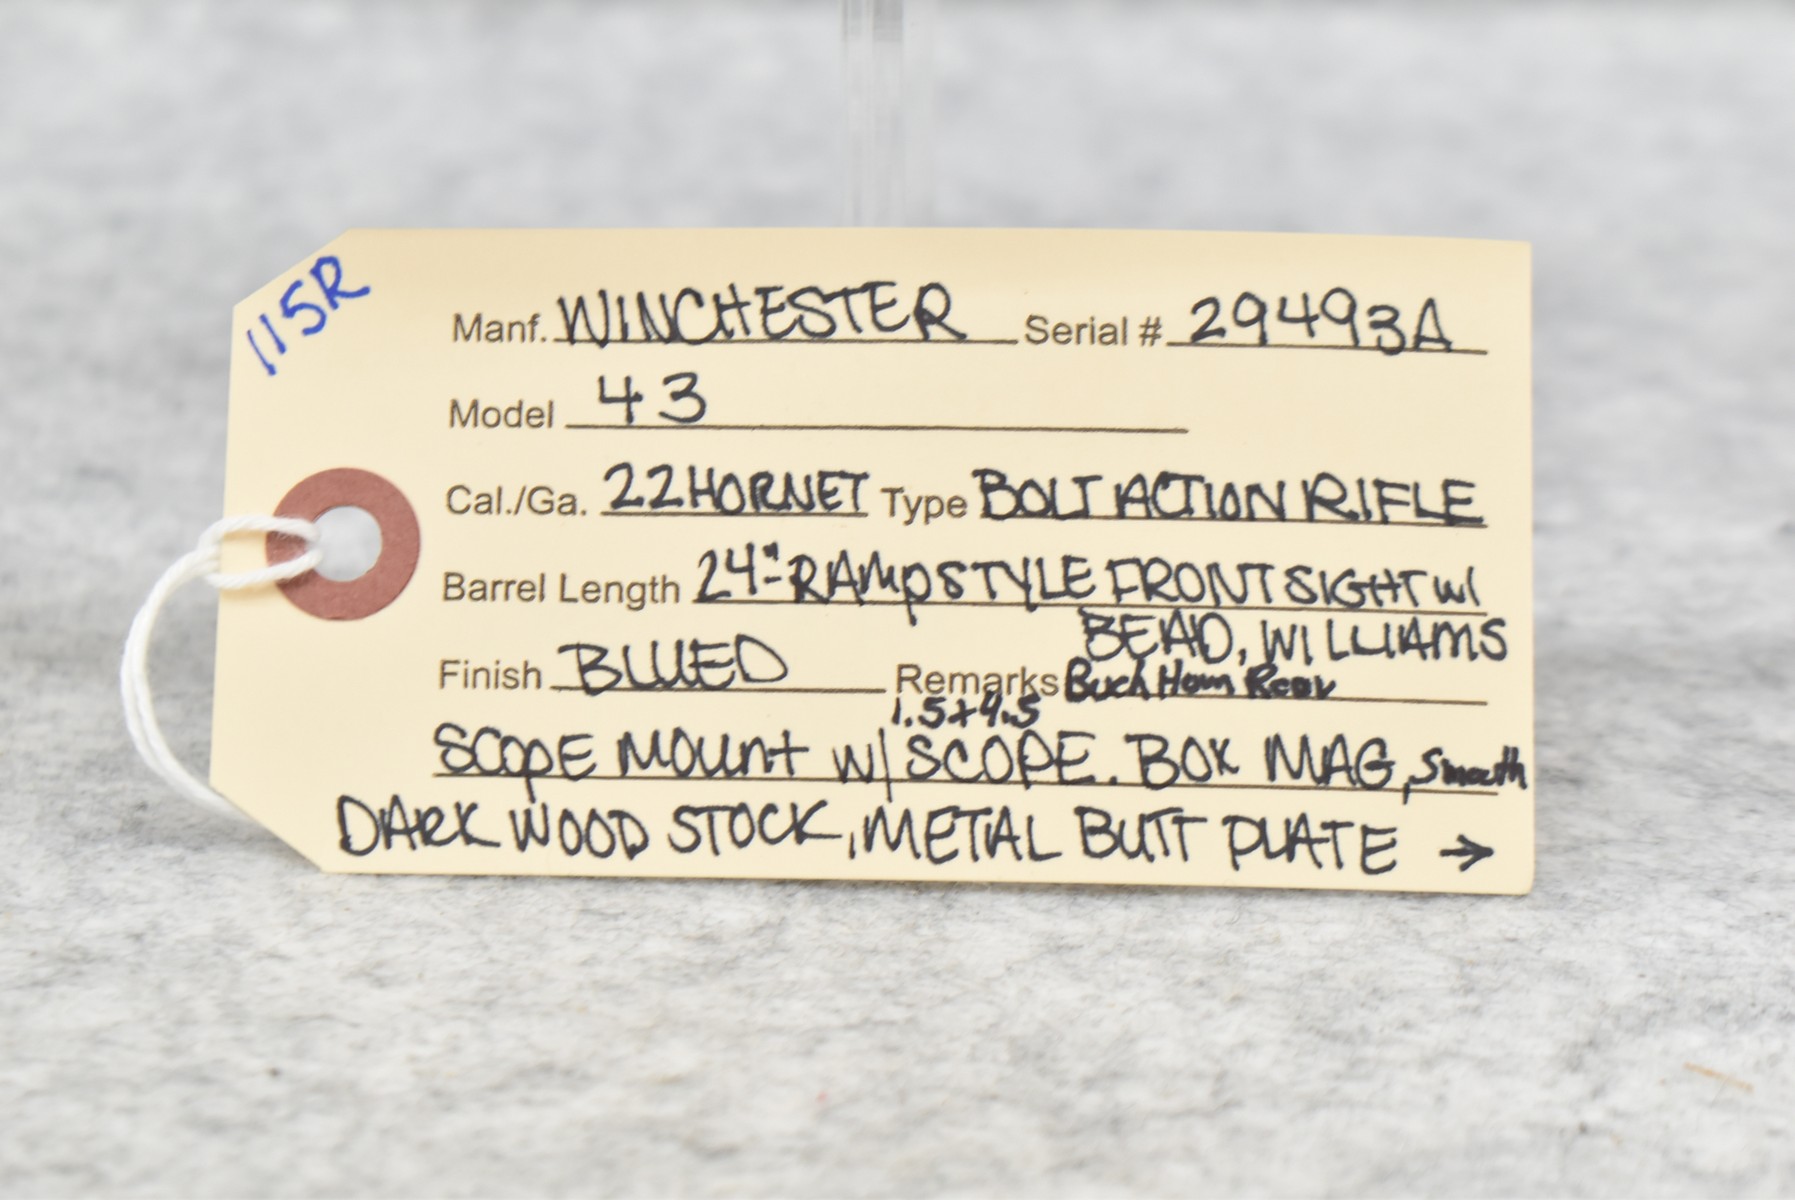 115R
Manf. WINCHESTER Serial # 29493A
Model 43
Cal./Ga. 22 HORNET Type BOLT ACTION RIFLE
Barrel Length 24"-RAMP STYLE FRONT SIGHT w/
BEAD, WILLIAMS
Finish BLUED Remarks Buck Horn Rear
1.5+4.5
SCOPE MOUNT W/ SCOPE. BOX MAG, Smooth
DARK WOOD STOCK, METAL BUTT PLATE →